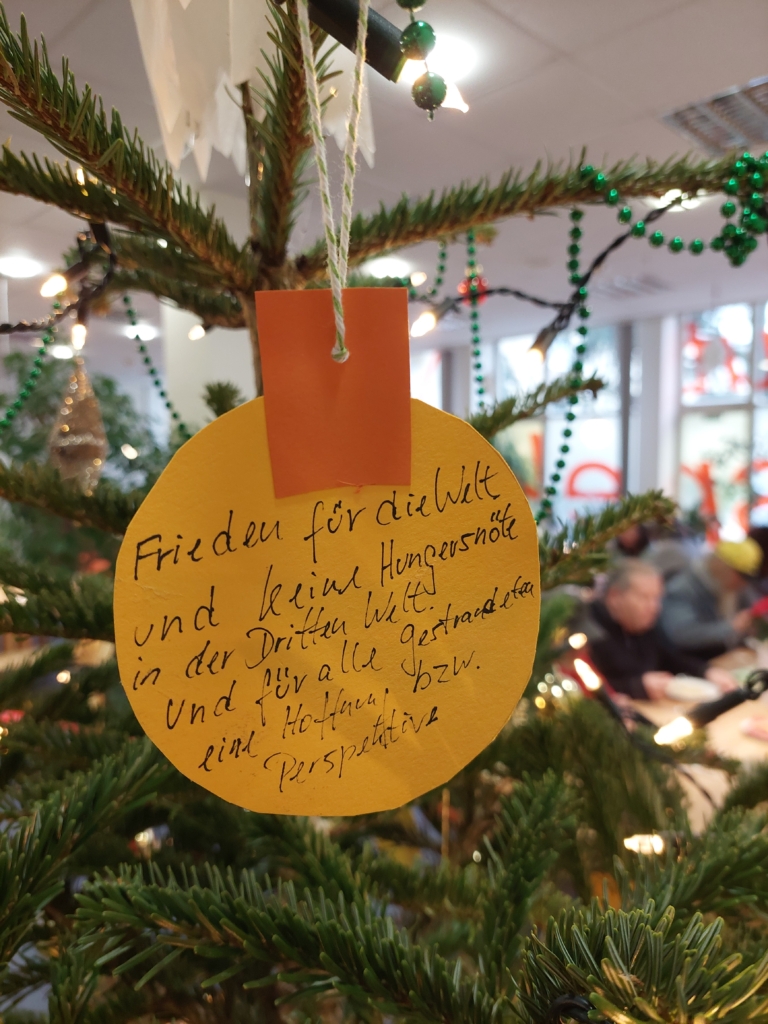 Frieden für die Welt
und keine Hungersnöte
in der Dritten Welt.
Und für alle gestrandeten
eine Hoffnung bzw.
Perspektive